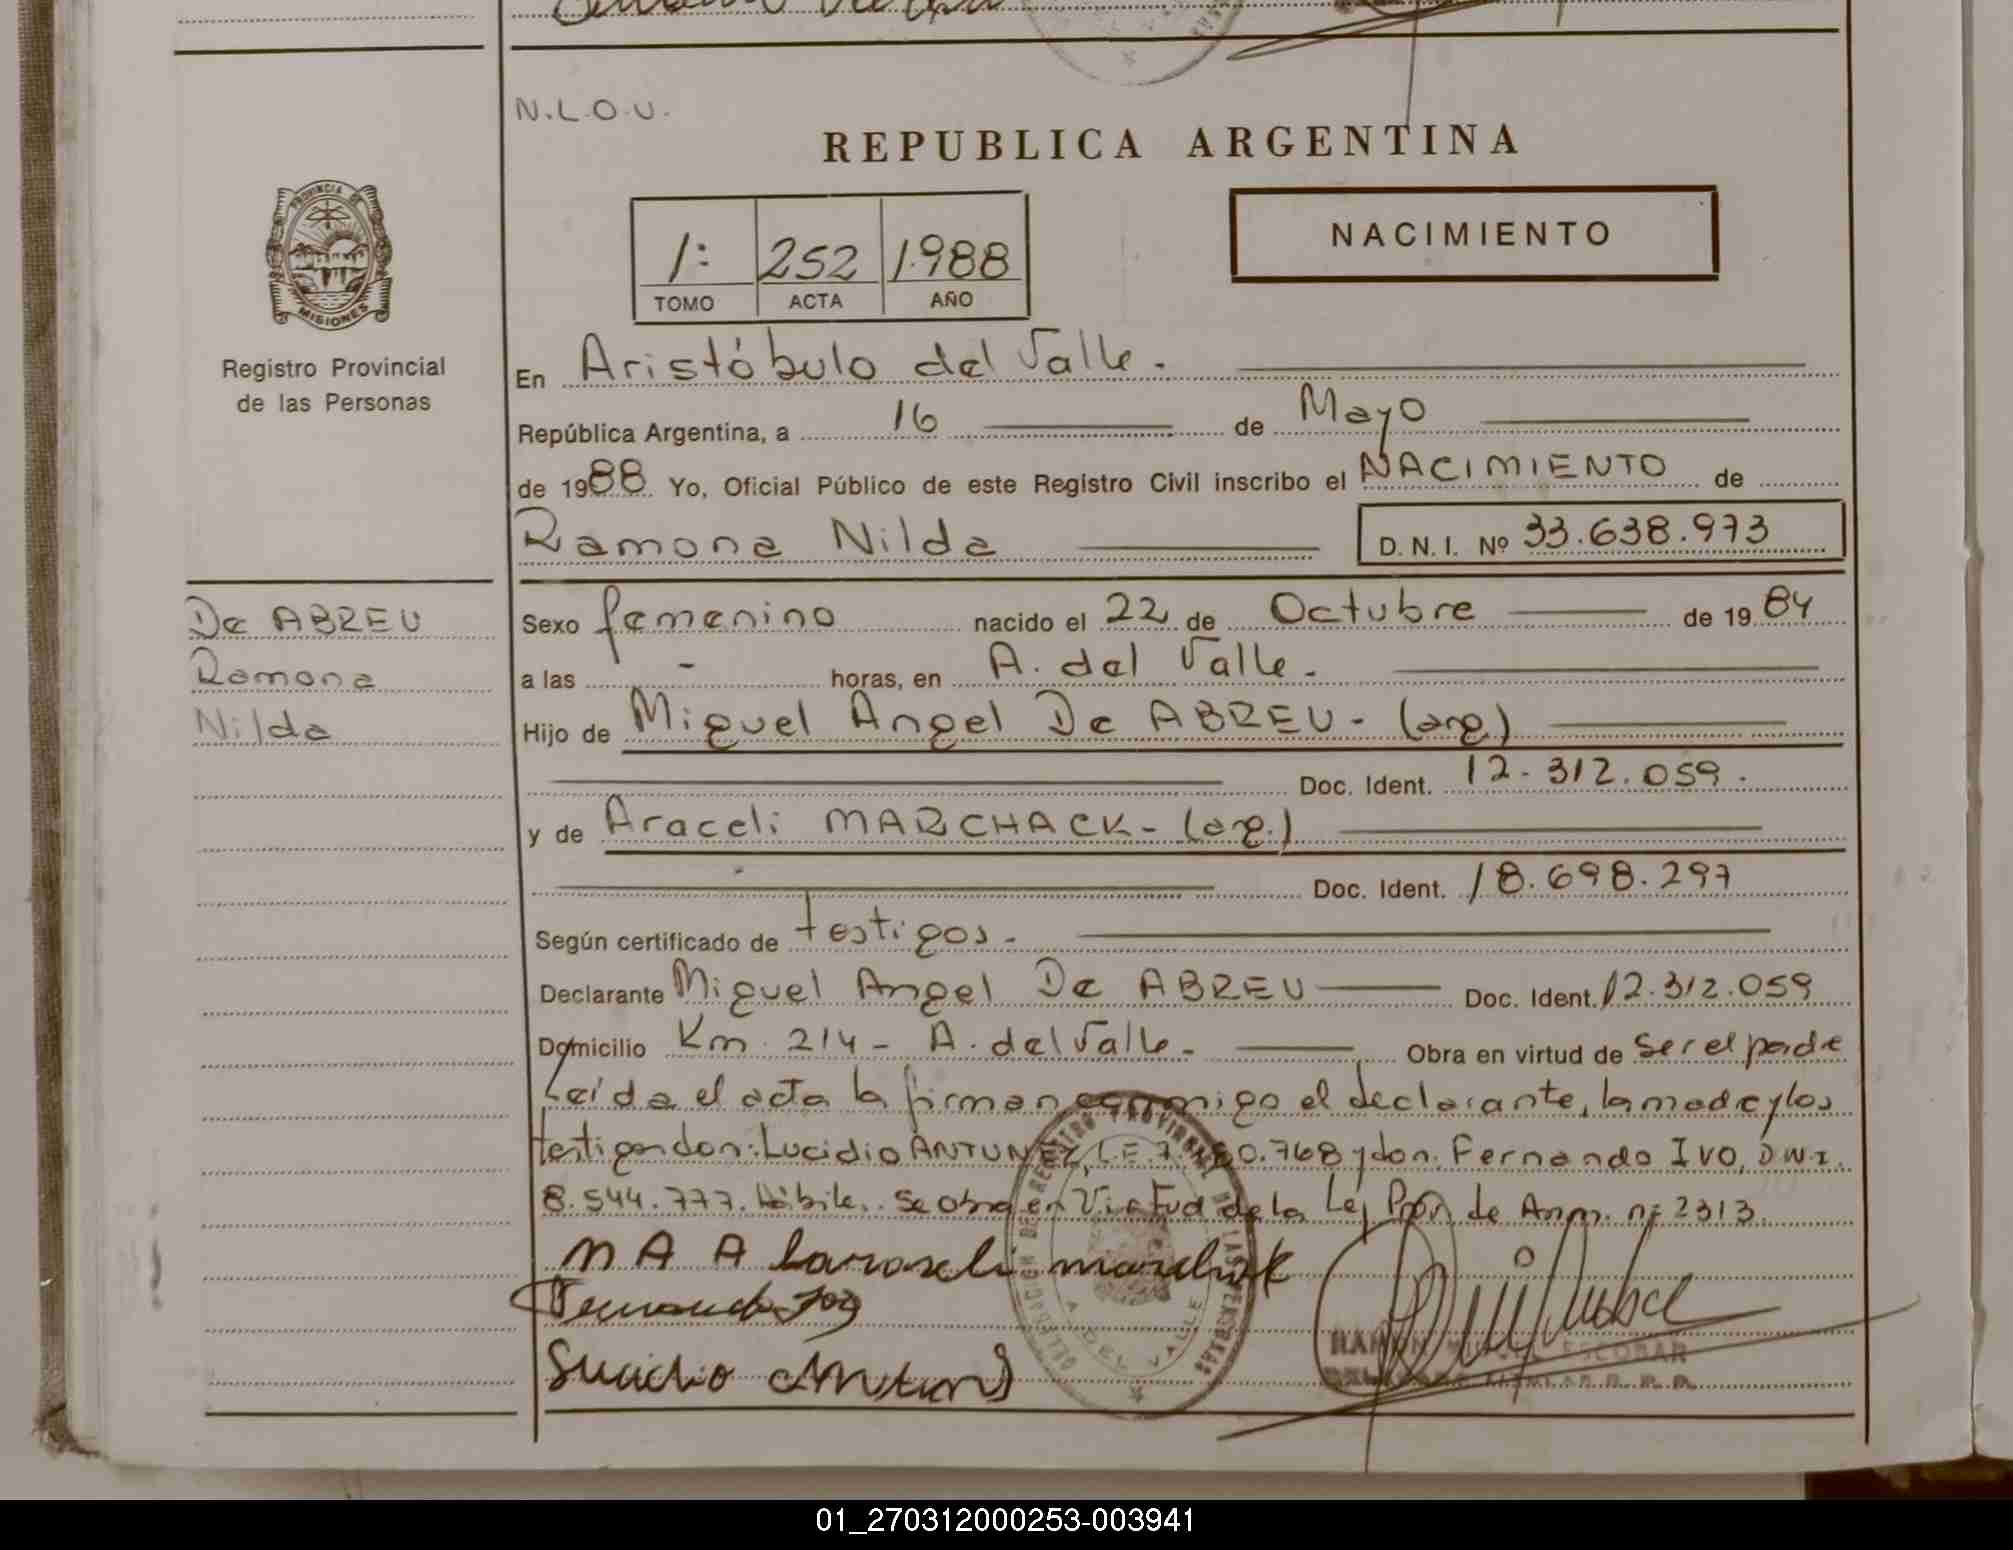 N.L.O.U.
REPUBLICA ARGENTINA
PROVINCIA DE
MISIONES
Registro Provincial
de las Personas
1: 252 1988
TOMO ACTA AÑO
NACIMIENTO
En Aristóbulo del Valle.
República Argentina, a 16 de Mayo
de 1988 Yo, Oficial Público de este Registro Civil inscribo el NACIMIENTO de
Ramona Nilda D.N.I. Nº 33.638.973
De ABREU
Ramona
Nilda
Sexo femenino nacido el 22 de Octubre de 1984
a las - horas, en A. del Valle.
Hijo de Miguel Angel De ABREU - (arg)
Doc. Ident. 12.312.059.
y de Araceli MARCHACK - (arg.)
Doc. Ident. 18.698.297
Según certificado de testigos.
Declarante Miguel Angel De ABREU Doc. Ident. 12.312.059
Domicilio Km 214 - A. del Valle. Obra en virtud de ser el padre
Leída el acta la firman conmigo el declarante, la madre y los
testigos don: Lucidio ANTUNEZ, L.E. 7. 0.768 y don. Fernando IVO, D.N.I.
8.544.777. Hábiles. Se obra en Virtud de la Ley Prov. de Anm. nº 2313
M A A
Lucidio
DELEGACION DE REGISTRO PROVINCIAL DE LAS PERSONAS
A. DEL VALLE
RAMON MIGUEL ESCOBAR
01_270312000253-003941